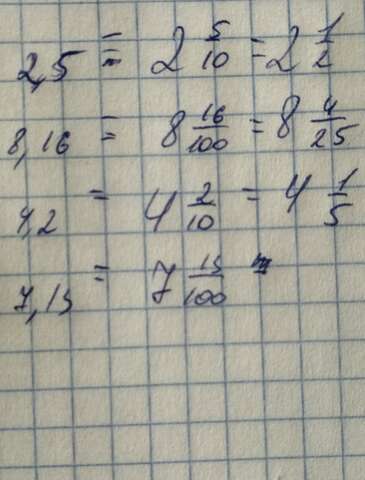 2,5 = 2 5/10 = 2 1/2
8,16 = 8 16/100 = 8 4/25
4,2 = 4 2/10 = 4 1/5
7,15 = 7 15/100